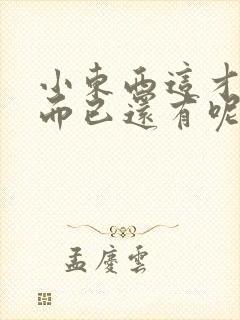 小東西這才
而已還有呢
孟慶雲